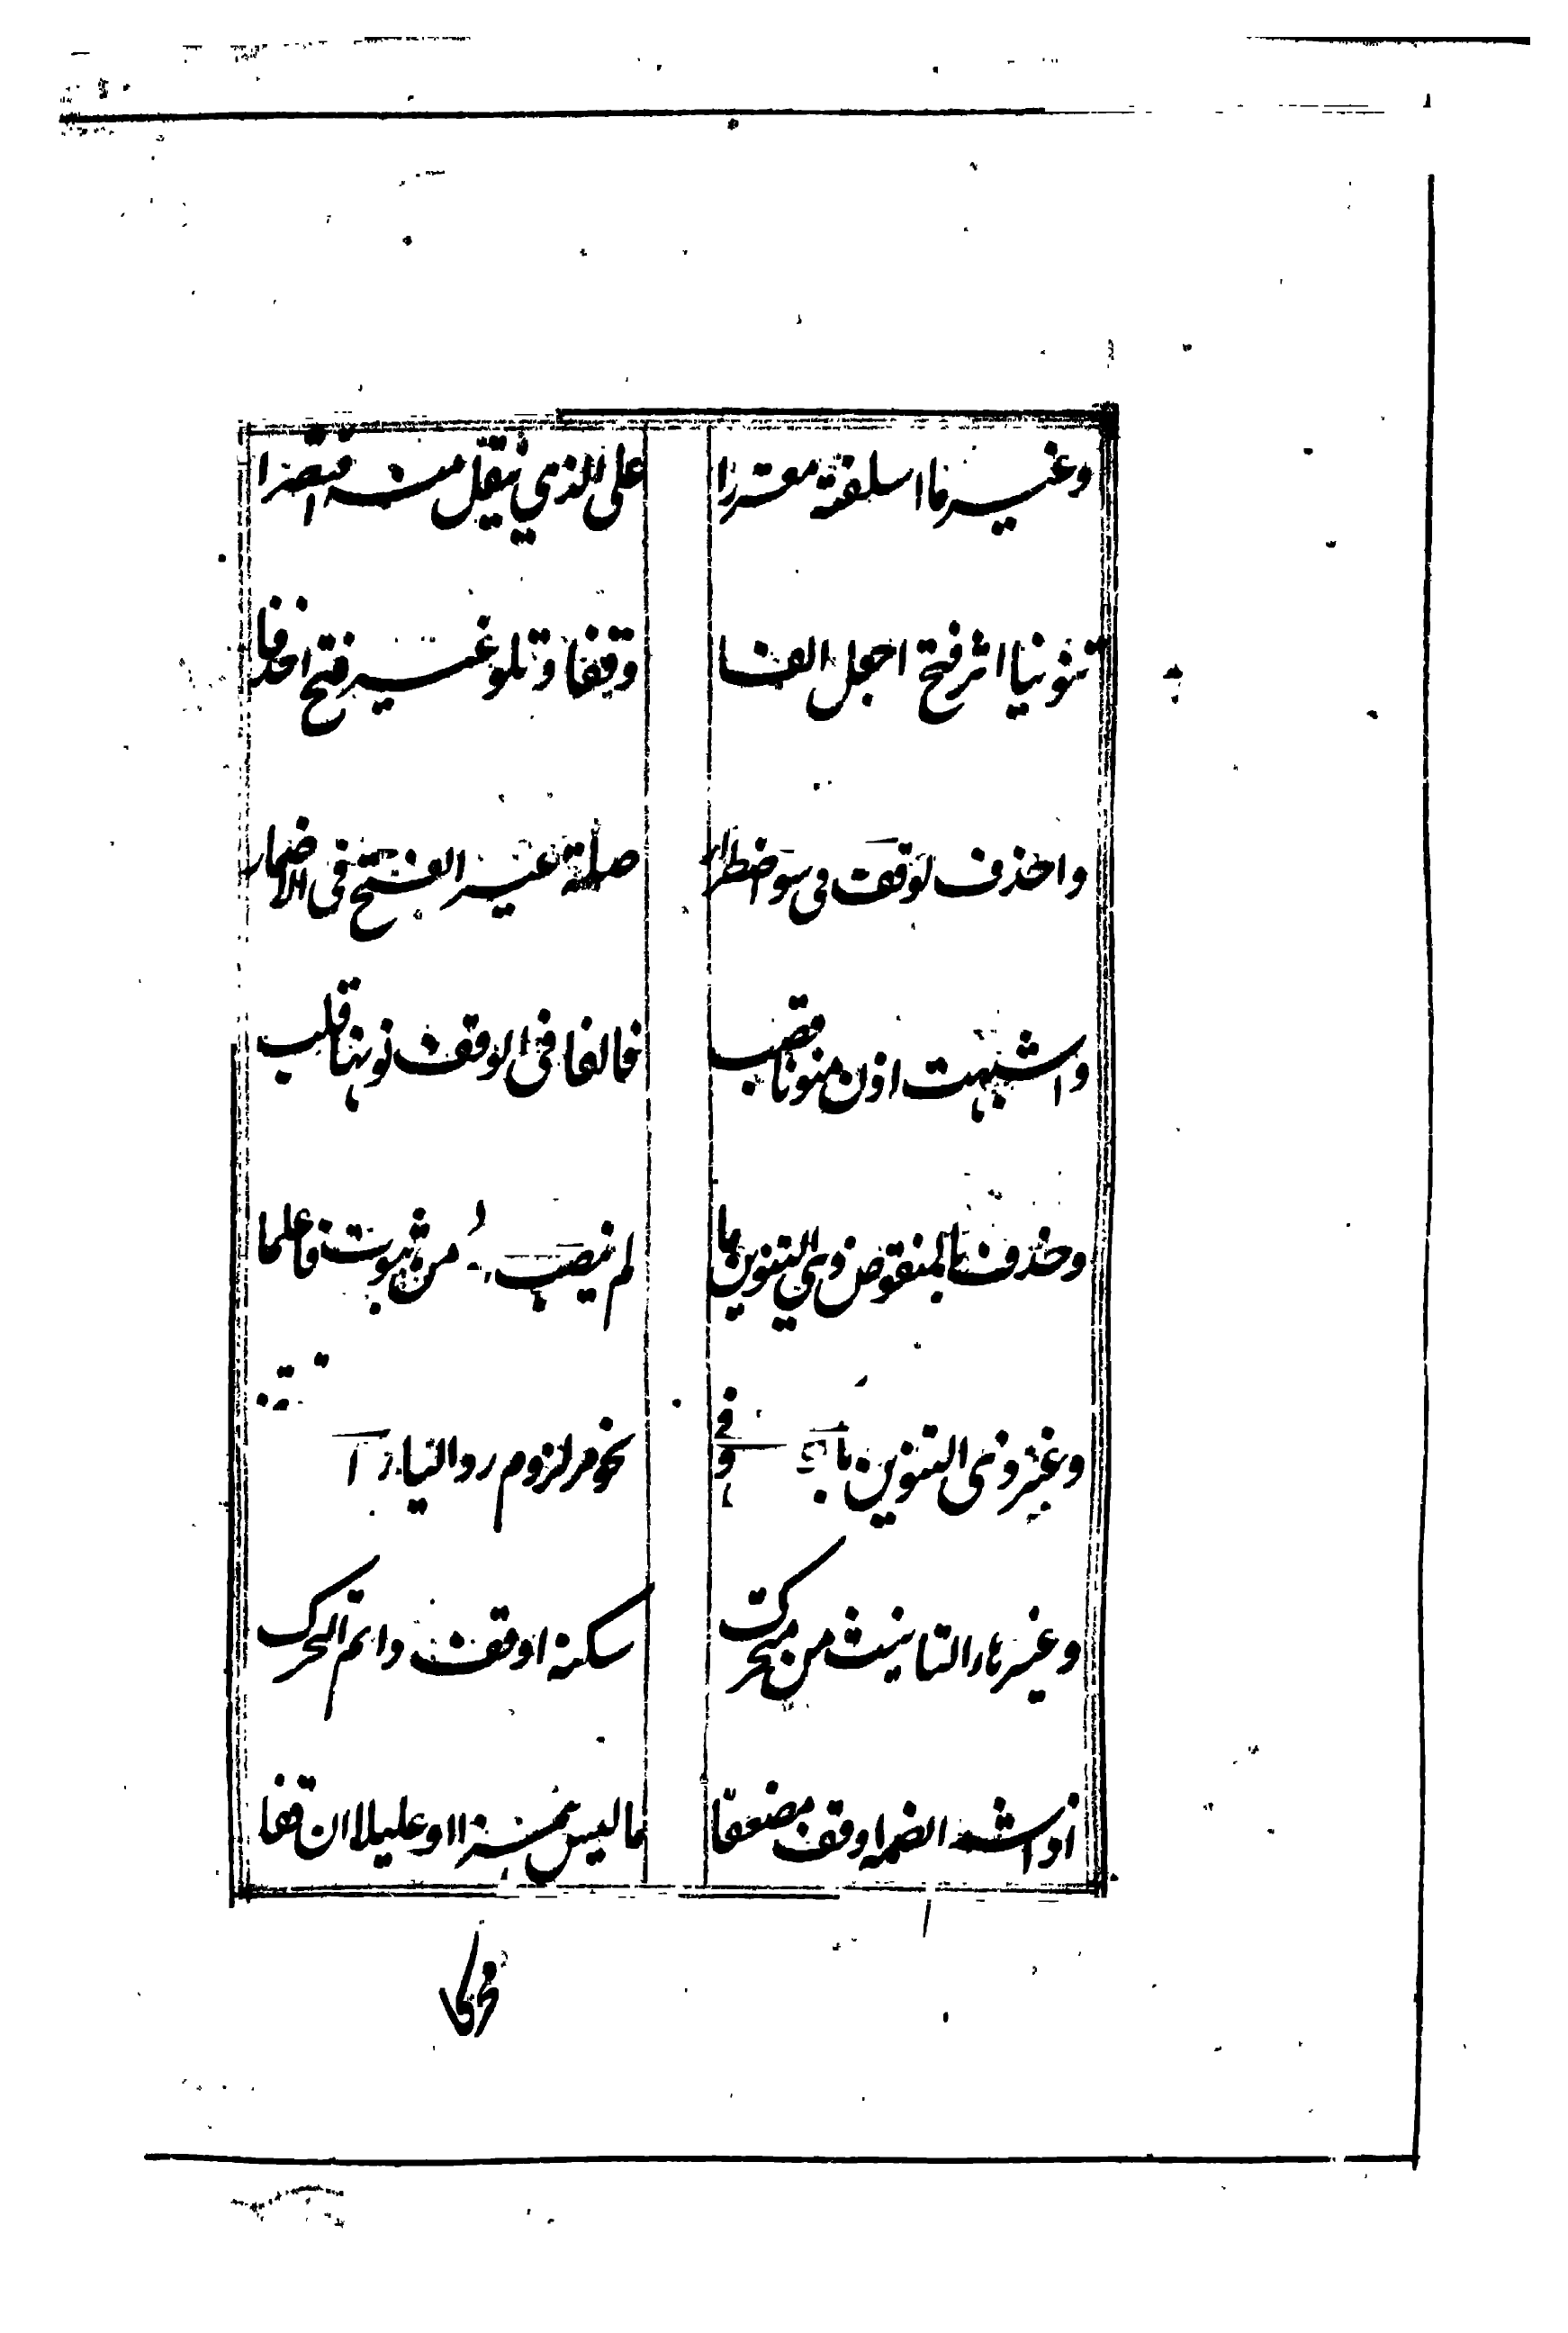 وغير ما اسلفته مقررا على الذي ينقل منه اقتصرا
تنوينا اثر فتح اجعل الفا وقفا وتلو غير فتح احذفا
واحذف لوقف في سوا اضطرار صلة غير الفتح في الاضمار
واشبهت اذن منونا نصب فالفا في الوقف نونها قلب
وحذف يا المنقوص ذي التنوين ما لم ينصب من ثبوت فاعلما
وغير ذي التنوين با وفي نحو مر لزوم رد اليا
وغير هاء التانيث من محرك سكنه او قف رائم التحرك
او اشمم الضمه او قف مضعفا ما ليس همزا او عليلا ان قفا
محركا